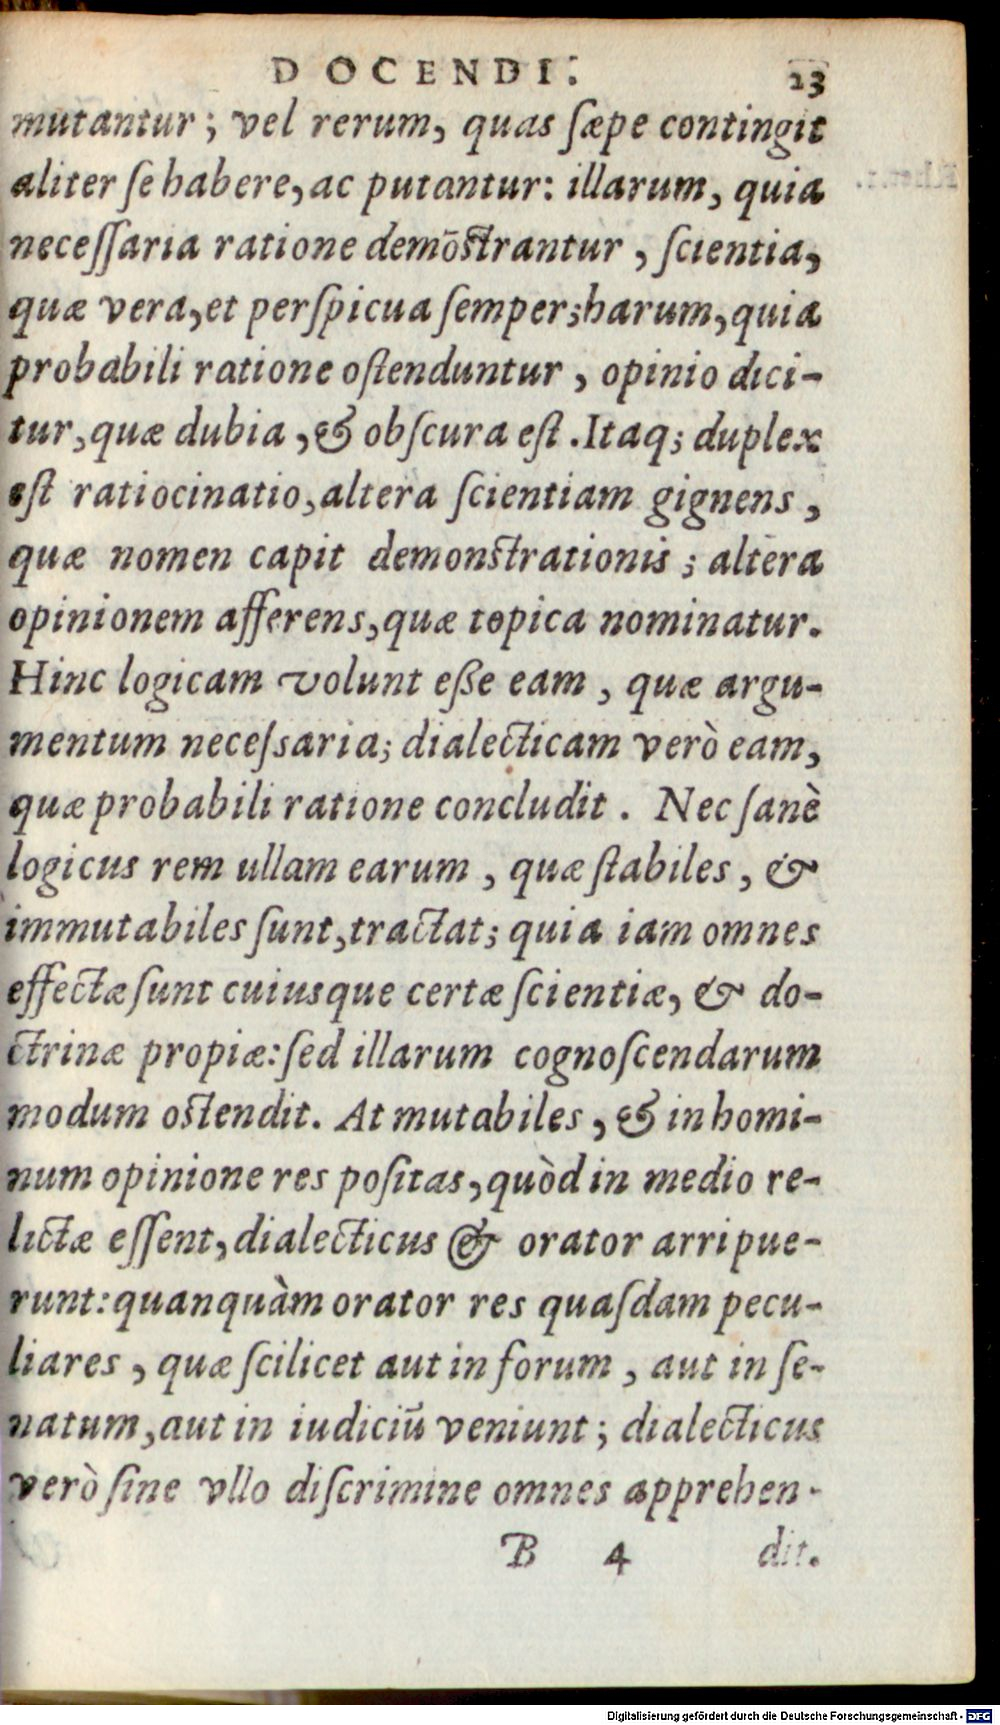 DOCENDI. 23
mutantur; vel rerum, quas ſæpe contingit
aliter ſe habere, ac putantur: illarum, quia
neceſſaria ratione demōſtrantur, ſcientia,
quæ vera, et perſpicua ſemper; harum, quia
probabili ratione oſtenduntur, opinio dici-
tur, quæ dubia, & obſcura eſt. Itaq; duplex
eſt ratiocinatio, altera ſcientiam gignens,
quæ nomen capit demonſtrationis; altera
opinionem afferens, quæ topica nominatur.
Hinc logicam volunt eße eam, quæ argu-
mentum neceſsaria; dialecticam verò eam,
quæ probabili ratione concludit. Nec ſanè
logicus rem ullam earum, quæ ſtabiles, &
immutabiles ſunt, tractat; quia iam omnes
effectæ ſunt cuiusque certæ ſcientiæ, & do-
ctrinæ propiæ: ſed illarum cognoſcendarum
modum oſtendit. At mutabiles, & in homi-
num opinione res poſitas, quòd in medio re-
lictæ eſſent, dialecticus & orator arripue-
runt: quanquàm orator res quaſdam pecu-
liares, quæ ſcilicet aut in forum, aut in ſe-
natum, aut in iudiciū veniunt; dialecticus
verò ſine vllo diſcrimine omnes apprehen-
B 4 dit.
Digitalisierung gefördert durch die Deutsche Forschungsgemeinschaft - DFG